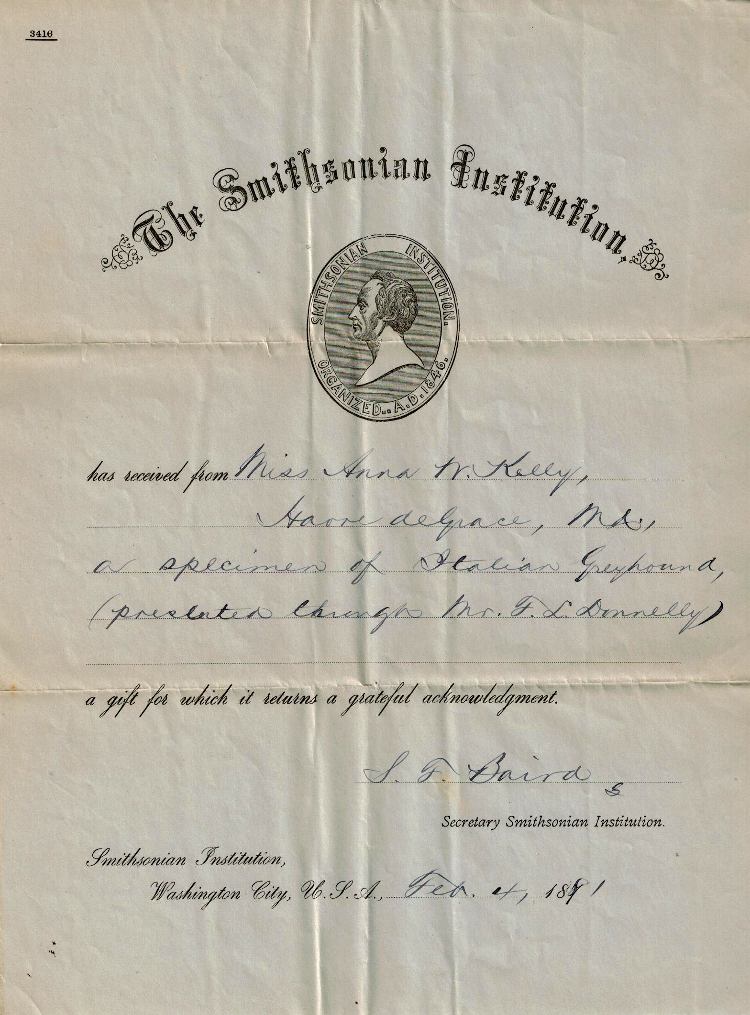 3416
The Smithsonian Institution.
SMITHSONIAN INSTITUTION.
ORGANIZED.. A.D. 1846.
has received from Miss Anna W. Kelly,
Havre deGrace, Md.,
a specimen of Italian Greyhound,
(presented through Mr. F. L. Donnelly)
a gift for which it returns a grateful acknowledgment.
S. F. Baird
Secretary Smithsonian Institution.
Smithsonian Institution,
Washington City, U.S.A., Feb. 4, 1881